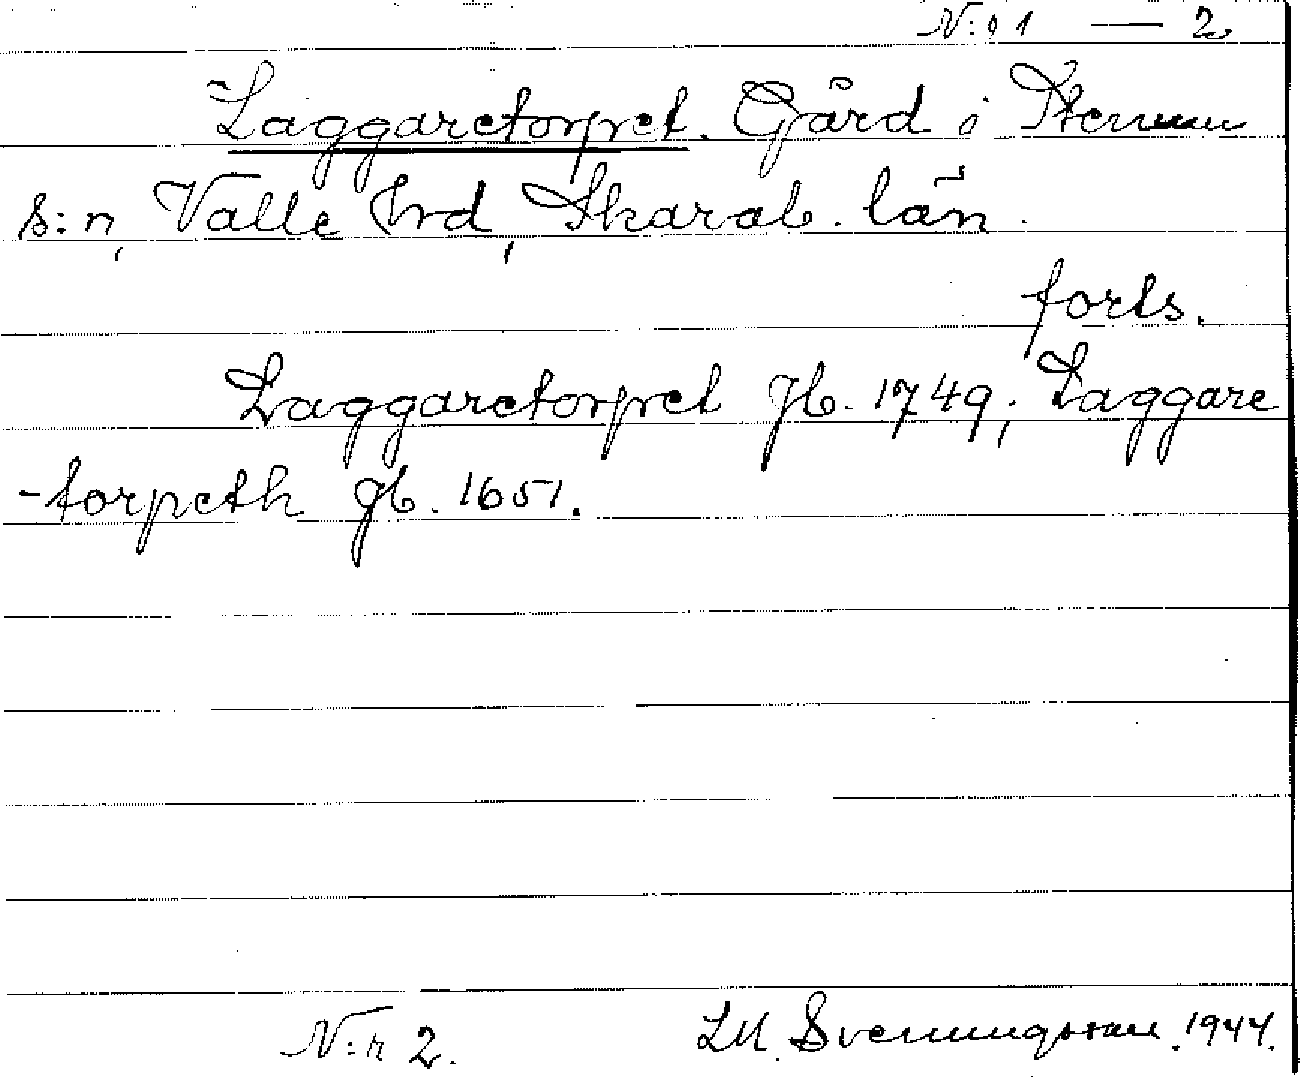 N:o 1 — 2
Laggaretorpet. Gård i Stenum
s:n, Valle hrd, Skarab. län.
forts.
Laggaretorpet Jb. 1749; Laggare
-torpeth Jb. 1651.
N:r 2.
LM. Svenningsson. 1944.